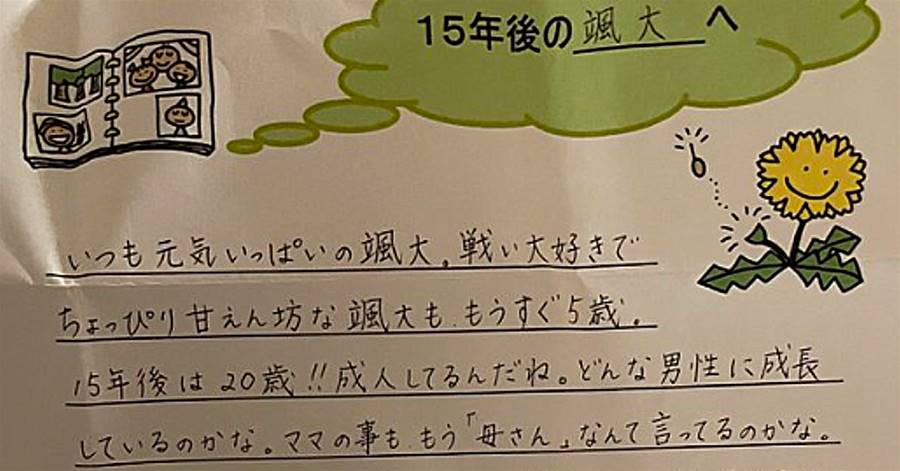 15年後の颯大へ
いつも元気いっぱいの颯大。戦い大好きで
ちょっぴり甘えん坊な颯大も、もうすぐ5歳。
15年後は20歳!!成人してるんだね。どんな男性に成長
しているのかな。ママの事も、もう「母さん」なんて言ってるのかな。